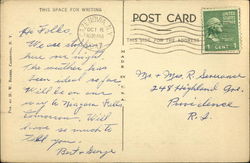 THIS SPACE FOR WRITING
POST CARD
THIS SIDE FOR THE ADDRESS
OCT 8
1 CENT 1
Hi Folks,
We are stopping
here one night
The weather has
been ideal so far.
Will be on our
way to Niagara Falls
tomorrow. Will
have so much to
tell you.
George
Mr. + Mrs. R.
248 Highland Ave.
Providence
R.I.
MADE IN